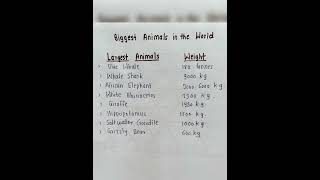 Biggest Animals in the World
Largest Animals Weight
Blue Whale 140 tonnes
Whale Shark 9000 kg
African Elephant 5000-6000 kg
White Rhinoceros 2300 kg
Giraffe 1930 kg
Hippopotamus 1500 kg
Salt water Crocodile 1000 kg
Grizzly Bear 600 kg